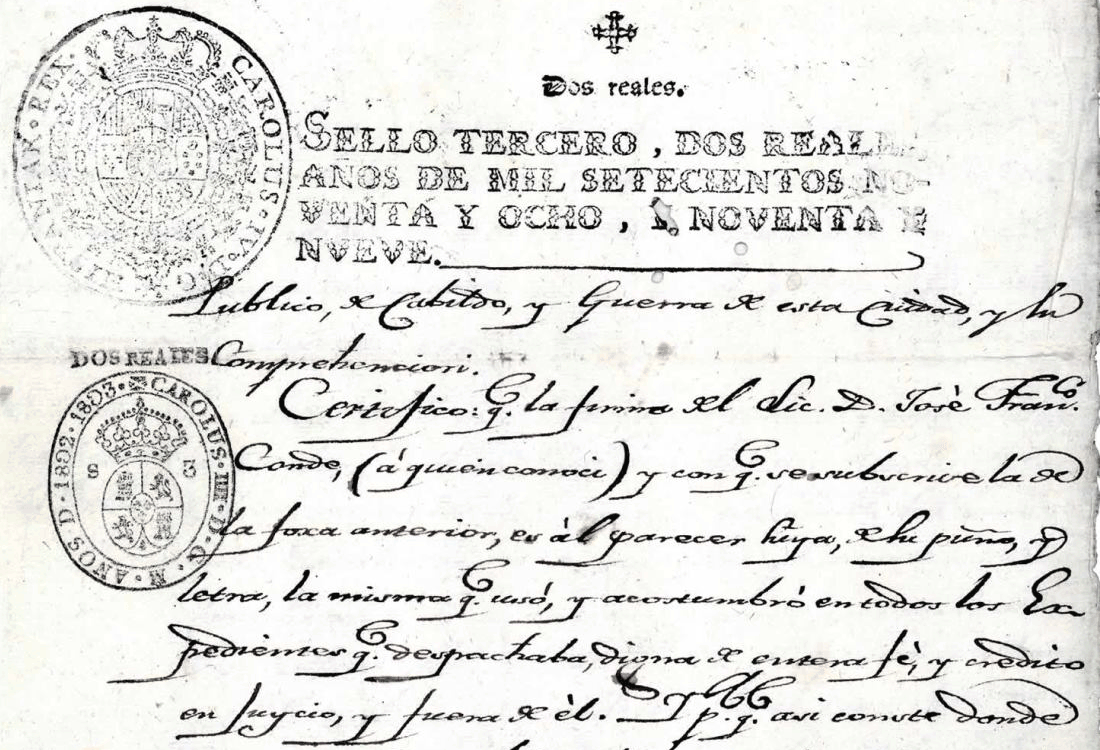 CAROLUS·IV·D·G· HISPANIAR·REX·
Dos reales.
SELLO TERCERO, DOS REALES
AÑOS DE MIL SETECIENTOS NO-
VENTA Y OCHO, Y NOVENTA Y
NVEVE.
Publico, de Cabildo, y Guerra de esta Ciudad, y su
DOS REALES
Comprehencion.
CAROLUS·IIII·D·G· ANOS D·1802·1803·
S 3
Certifico: q.e la firma del Lic. D. Josè Fran.co
Conde, (à quien conoci) y con q.e se subscrive la de
la foxa anterior, es àl parecer suya, de su puño, y
letra, la misma q.e usó, y acostumbró en todos los Ex-
pedientes q.e despachaba, digna de entera fè, y credito
en Juycio, y fuera de èl. Y p.a q.e asi conste donde